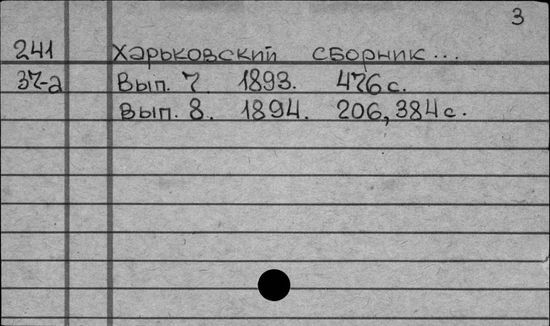 3
241 Харьковский сборник...
37-а Вып. 7 1893. 476 с.
Вып. 8. 1894. 206, 384 с.